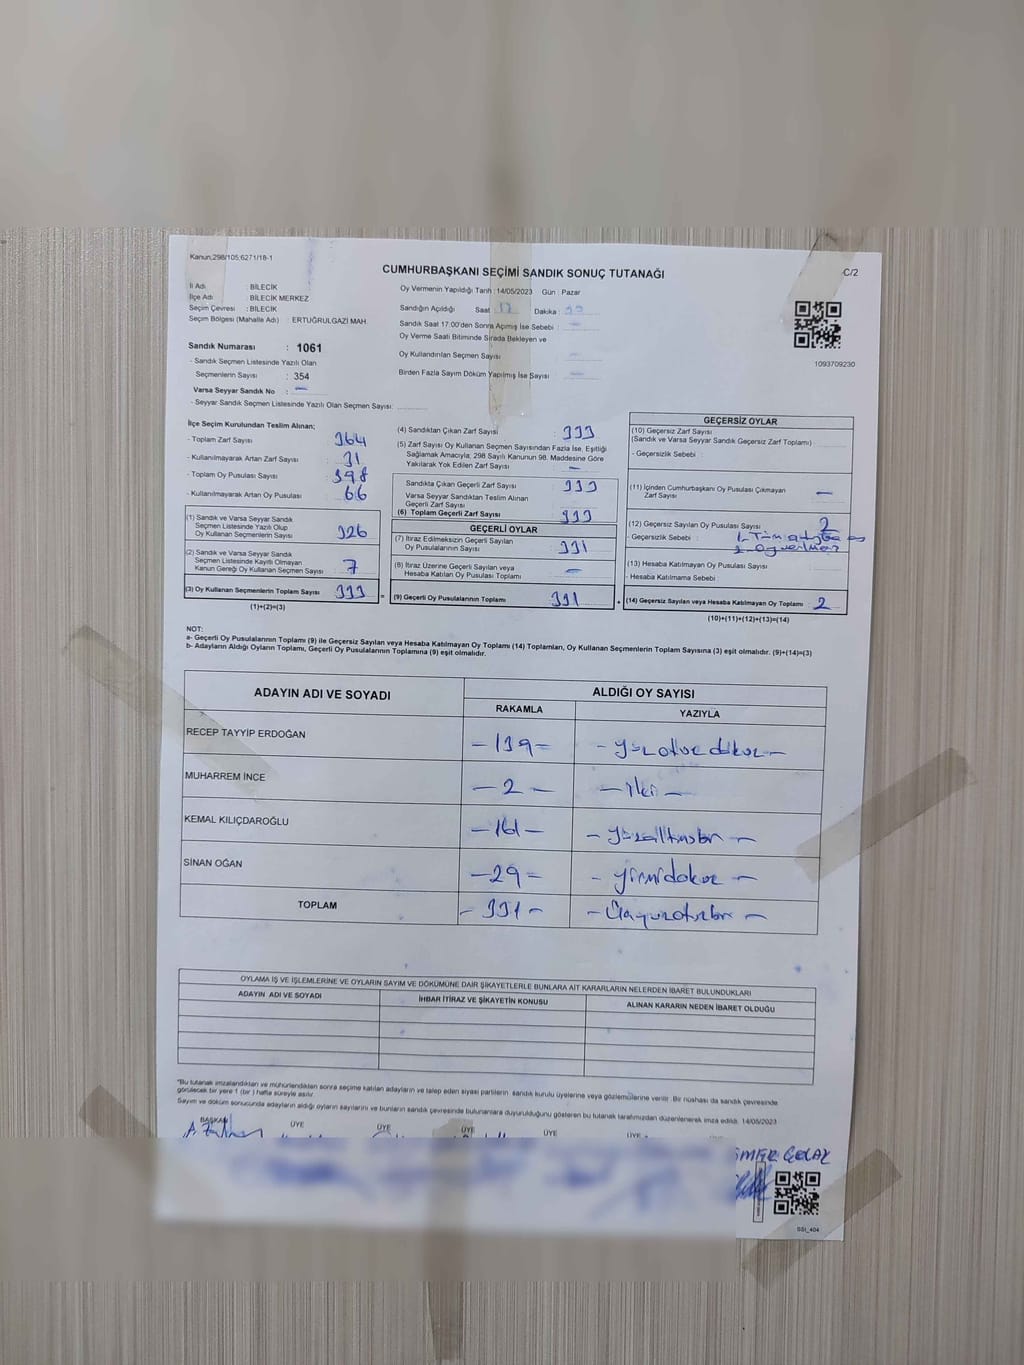 Kanun;298/105;6271/18-1
C/2
CUMHURBAŞKANI SEÇİMİ SANDIK SONUÇ TUTANAĞI
İl Adı : BİLECİK
İlçe Adı : BİLECİK MERKEZ
Seçim Çevresi : BİLECİK
Seçim Bölgesi (Mahalle Adı) : ERTUĞRULGAZİ MAH.
Sandık Numarası : 1061
- Sandık Seçmen Listesinde Yazılı Olan
Seçmenlerin Sayısı : 354
Varsa Seyyar Sandık No : —
- Seyyar Sandık Seçmen Listesinde Yazılı Olan Seçmen Sayısı:
Oy Vermenin Yapıldığı Tarih : 14/05/2023 Gün : Pazar
Sandığın Açıldığı Saat : 17 Dakika :
Sandık Saat 17.00'den Sonra Açımış İse Sebebi : —
Oy Verme Saati Bitiminde Sırada Bekleyen ve
Oy Kullandırılan Seçmen Sayısı —
Birden Fazla Sayım Döküm Yapılmış İse Sayısı : —
1093709230
İlçe Seçim Kurulundan Teslim Alınan;
- Toplam Zarf Sayısı : 364
- Kullanılmayarak Artan Zarf Sayısı : 31
- Toplam Oy Pusulası Sayısı : 398
- Kullanılmayarak Artan Oy Pusulası : 66
(1) Sandık ve Varsa Seyyar Sandık
Seçmen Listesinde Yazılı Olup
Oy Kullanan Seçmenlerin Sayısı : 326
(2) Sandık ve Varsa Seyyar Sandık
Seçmen Listesinde Kayıtlı Olmayan
Kanun Gereği Oy Kullanan Seçmen Sayısı : 7
(3) Oy Kullanan Seçmenlerin Toplam Sayısı : 333
(1)+(2)=(3)
(4) Sandıktan Çıkan Zarf Sayısı : 333
(5) Zarf Sayısı Oy Kullanan Seçmen Sayısından Fazla İse, Eşitliği
Sağlamak Amacıyla; 298 Sayılı Kanunun 98. Maddesine Göre
Yakılarak Yok Edilen Zarf Sayısı : —
Sandıkta Çıkan Geçerli Zarf Sayısı : 333
Varsa Seyyar Sandıktan Teslim Alınan
Geçerli Zarf Sayısı :
(6) Toplam Geçerli Zarf Sayısı : 333
GEÇERLİ OYLAR
(7) İtiraz Edilmeksizin Geçerli Sayılan
Oy Pusulalarının Sayısı : 331
(8) İtiraz Üzerine Geçerli Sayılan veya
Hesaba Katılan Oy Pusulası Toplamı : —
(9) Geçerli Oy Pusulalarının Toplamı : 331
GEÇERSİZ OYLAR
(10) Geçersiz Zarf Sayısı
(Sandık ve Varsa Seyyar Sandık Geçersiz Zarf Toplamı)
- Geçersizlik Sebebi :
(11) İçinden Cumhurbaşkanı Oy Pusulası Çıkmayan
Zarf Sayısı : —
(12) Geçersiz Sayılan Oy Pusulası Sayısı : 2
- Geçersizlik Sebebi : 1-
2-
(13) Hesaba Katılmayan Oy Pusulası Sayısı :
- Hesaba Katılmama Sebebi :
(14) Geçersiz Sayılan veya Hesaba Katılmayan Oy Toplamı : 2
(10)+(11)+(12)+(13)=(14)
NOT:
a- Geçerli Oy Pusulalarının Toplamı (9) ile Geçersiz Sayılan veya Hesaba Katılmayan Oy Toplamı (14) Toplamları, Oy Kullanan Seçmenlerin Toplam Sayısına (3) eşit olmalıdır. (9)+(14)=(3)
b- Adayların Aldığı Oyların Toplamı, Geçerli Oy Pusulalarının Toplamına (9) eşit olmalıdır.
ADAYIN ADI VE SOYADI
ALDIĞI OY SAYISI
RAKAMLA YAZIYLA
RECEP TAYYİP ERDOĞAN – 139 – – yüzotuzdokuz –
MUHARREM İNCE – 2 – – iki –
KEMAL KILIÇDAROĞLU – 161 – – yüzaltmışbir –
SİNAN OĞAN – 29 – – yirmidokuz –
TOPLAM – 331 – – Üçyüzotuzbir –
OYLAMA İŞ VE İŞLEMLERİNE VE OYLARIN SAYIM VE DÖKÜMÜNE DAİR ŞİKAYETLERLE BUNLARA AİT KARARLARIN NELERDEN İBARET BULUNDUKLARI
ADAYIN ADI VE SOYADI
İHBAR İTİRAZ VE ŞİKAYETİN KONUSU
ALINAN KARARIN NEDEN İBARET OLDUĞU
"Bu tutanak imzalandıktan ve mühürlendikten sonra seçime katılan adayların ve talep eden siyasi partilerin sandık kurulu üyelerine veya gözlemcilerine verilir. Bir nüshası da sandık çevresinde
görülecek bir yere 1 (bir ) hafta süreyle asılır.
Sayım ve döküm sonucunda adayların aldığı oyların sayılarını ve bunların sandık çevresinde bulunanlara duyurulduğunu gösteren bu tutanak tarafımızdan düzenlenerek imza edildi. 14/05/2023
BAŞKAN ÜYE ÜYE ÜYE ÜYE ÜYE
SSt_404